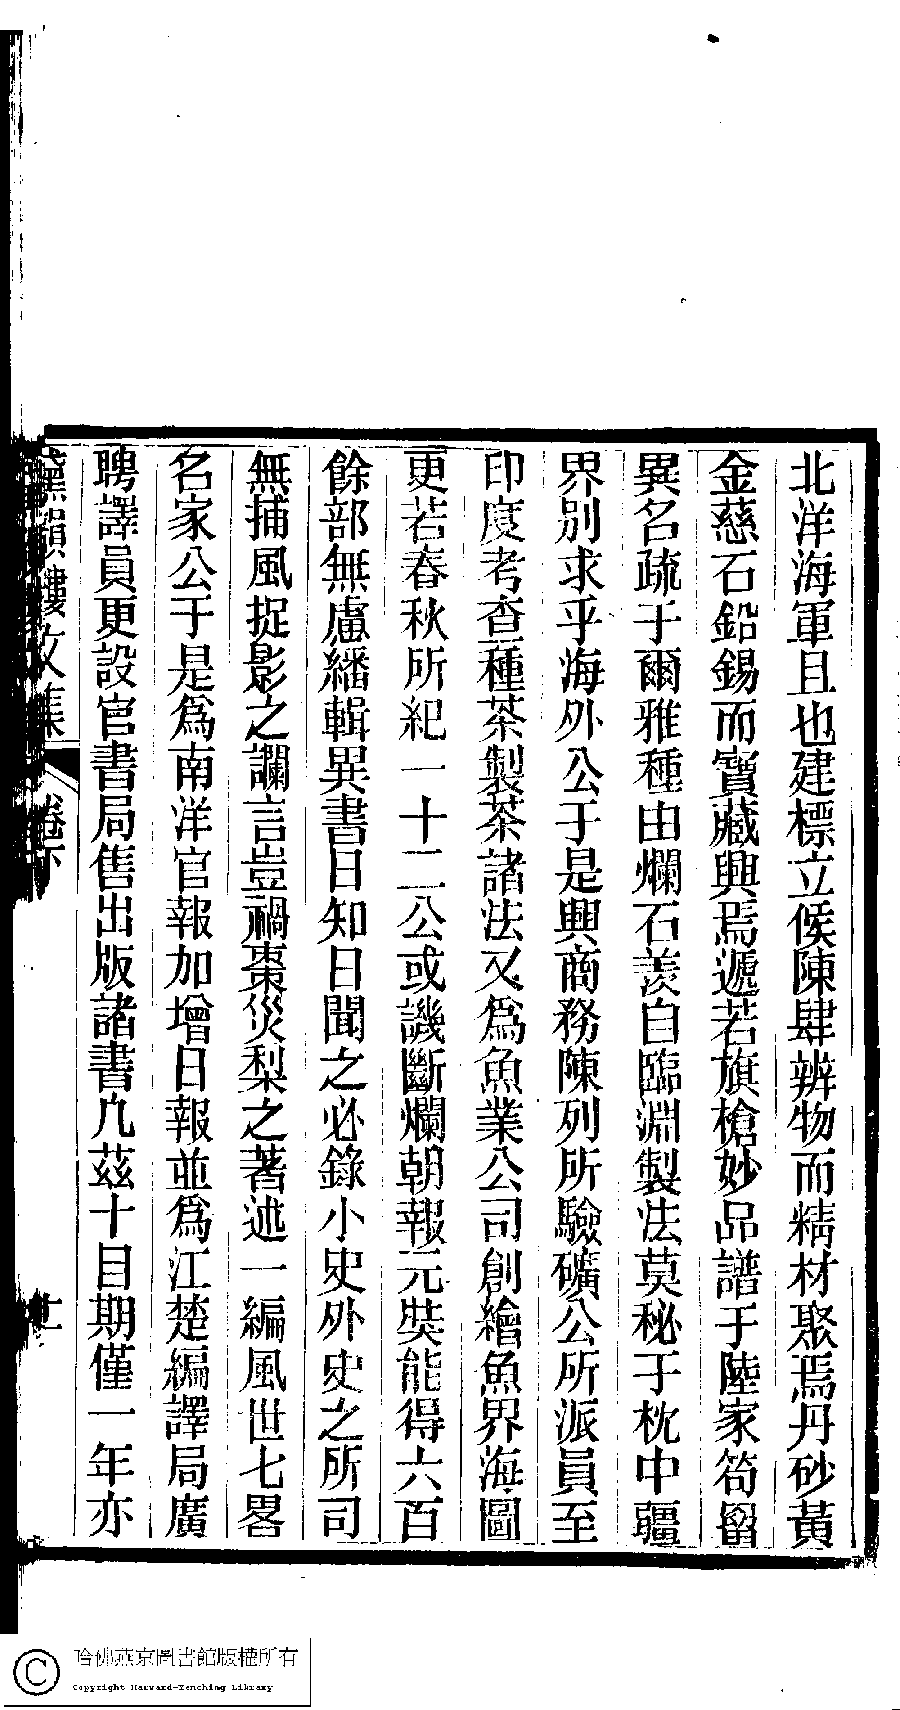 北洋海軍且也建標立候陳肆辨物而精材聚焉丹砂黃
金慈石鉛錫而寶藏興焉遞若旗槍妙品譜于陸家筍留
異名疏于爾雅種由爛石羨自臨淵製法莫秘于枕中疆
界別求乎海外公于是興商務陳列所驗礦公所派員至
印度考查種茶製茶諸法又為魚業公司創繪魚界海圖
更若春秋所紀一十二公或譏斷爛朝報元奘能得六百
餘部無慮繙輯異書日知日聞之必錄小史外史之所司
無捕風捉影之讕言豈禍棗災梨之著述一編風世七畧
名家公于是為南洋官報加增日報並為江楚編譯局廣
聘譯員更設官書局售出版諸書凡茲十目期僅一年亦
韻樓文集 卷下 十一
哈佛燕京圖書館版權所有
Copyright Harvard-Yenching Library